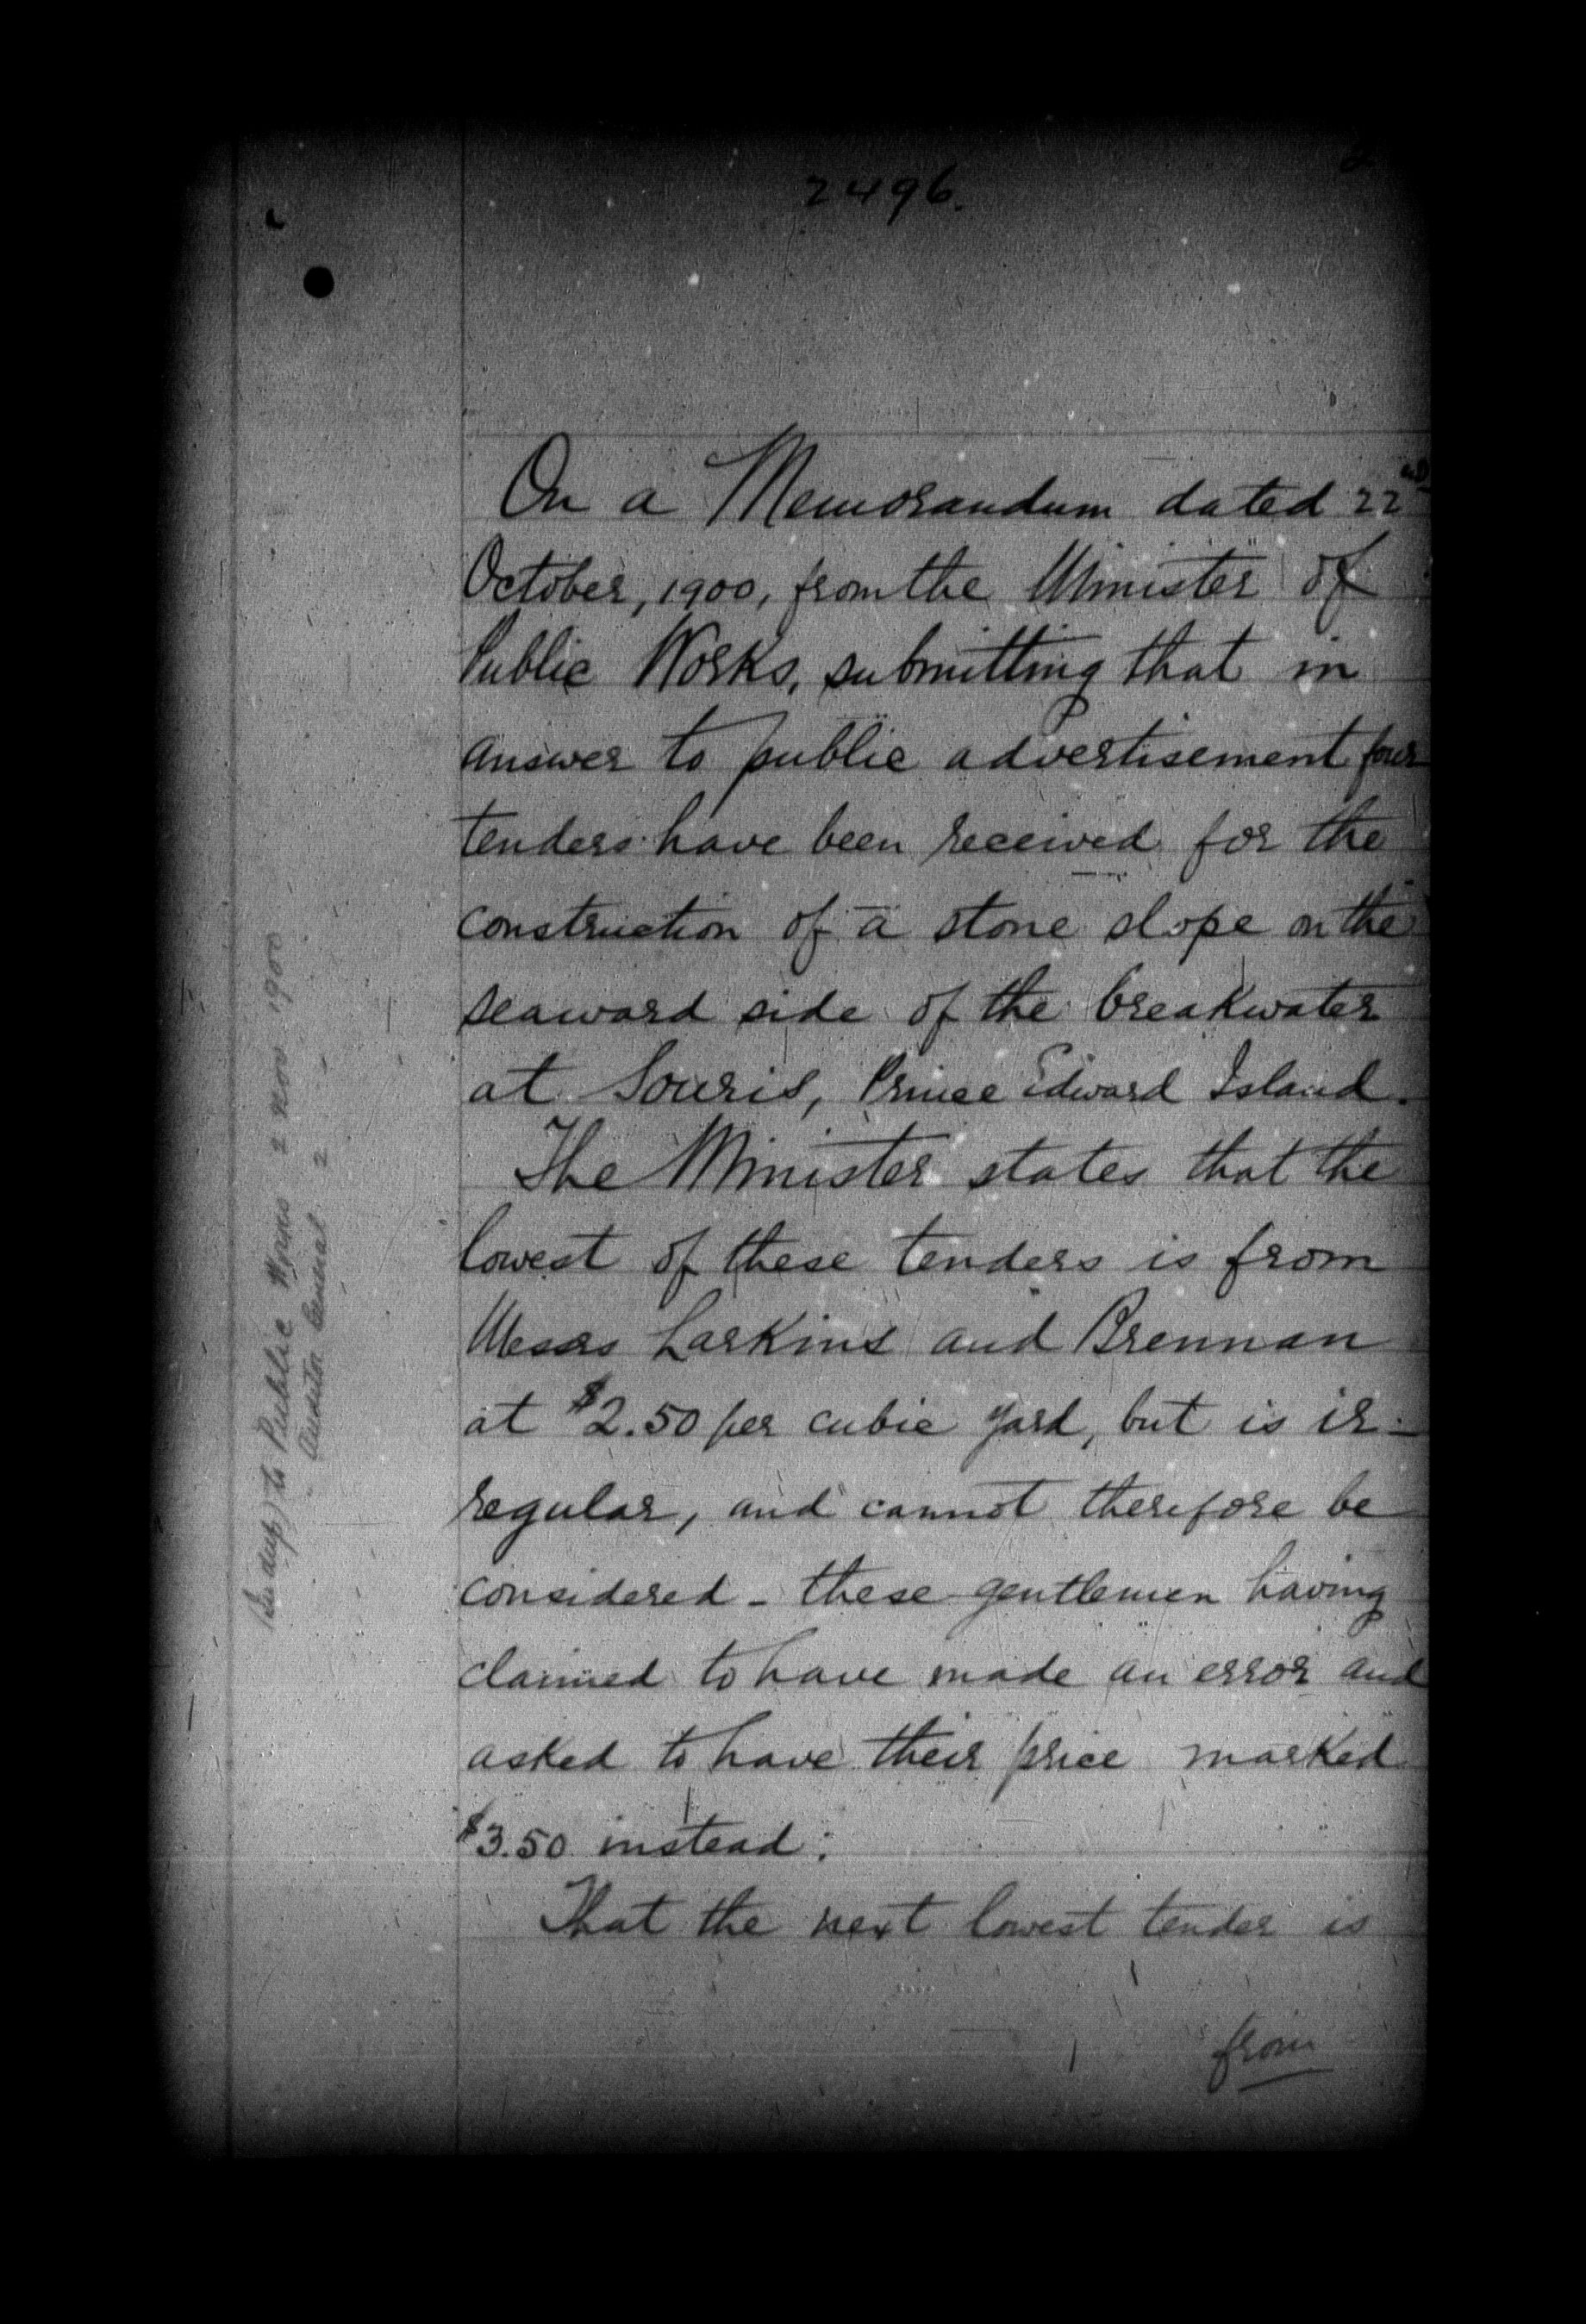 2496.
On a Memorandum dated 22nd
October, 1900, from the Minister of
Public Works, submitting that in
answer to public advertisement four
tenders have been received for the
construction of a stone slope on the
seaward side of the breakwater
at Souris, Prince Edward Island.
The Minister states that the
lowest of these tenders is from
Messrs Larkins and Brennan
at $2.50 per cubic yard, but is ir-
regular, and cannot therefore be
considered - these gentlemen having
claimed to have made an error and
asked to have their price marked
$3.50 instead:
That the next lowest tender is
from
to Public Works 2 Nov. 1900
" Auditor General 2 "